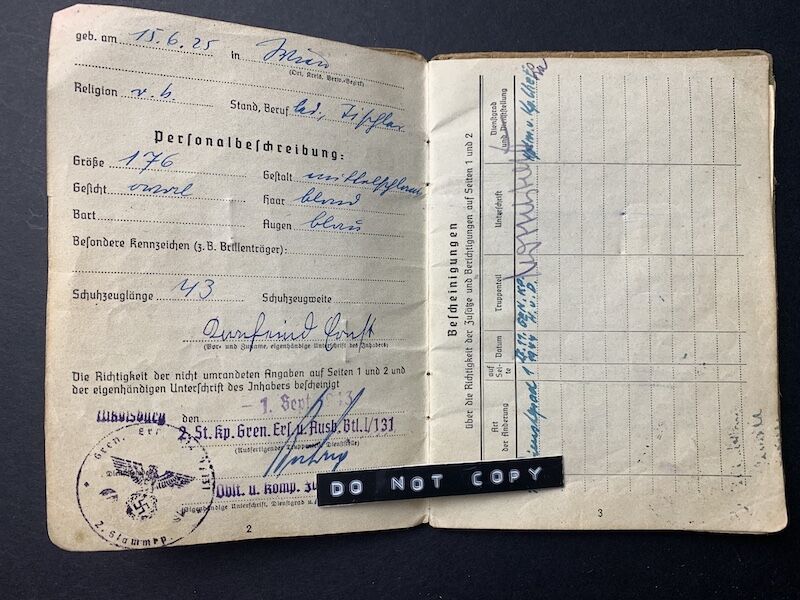 geb. am 15.6.25 in Wien
(Ort, Kreis, Verw.-Bezirk)
Religion r. k. Stand, Beruf led., Tischler
Personalbeschreibung:
Größe 176 Gestalt mittelschlank
Gesicht oval Haar blond
Bart Augen blau
Besondere Kennzeichen (z.B. Brillenträger):
Schuhzeuglänge 43 Schuhzeugweite
Ernst
(Vor- und Zuname, eigenhändige Unterschrift des Inhabers)
Die Richtigkeit der nicht umrandeten Angaben auf Seiten 1 und 2 und
der eigenhändigen Unterschrift des Inhabers bescheinigt
Nikolsburg den -1. Sept. 1943
2. St. Kp. Gren. Ers. u. Ausb. Btl. I/131
(Ausfertigender Truppenteil, Dienststelle)
Oblt. u. Komp.
(Eigenhändige Unterschrift, Dienstgrad u.
Gren. Ers.
2. Stammkp.
2
DO NOT COPY
Bescheinigungen
über die Richtigkeit der Zusätze und Berichtigungen auf Seiten 1 und 2
Art der Änderung
auf Seite
Datum
Truppenteil
Unterschrift
Dienstgrad und Dienststellung
Dienstgrad 1
1944
3